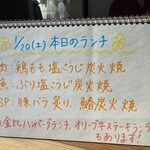 1/20(土)本日のランチ
肉:鶏もも塩こうじ炭火焼
魚:ぶり塩こうじ炭火焼
SP:豚バラ炙り、鰆炭火焼
金比ハンバーグランチ、オリーブ牛ステーキランチ
もあります!